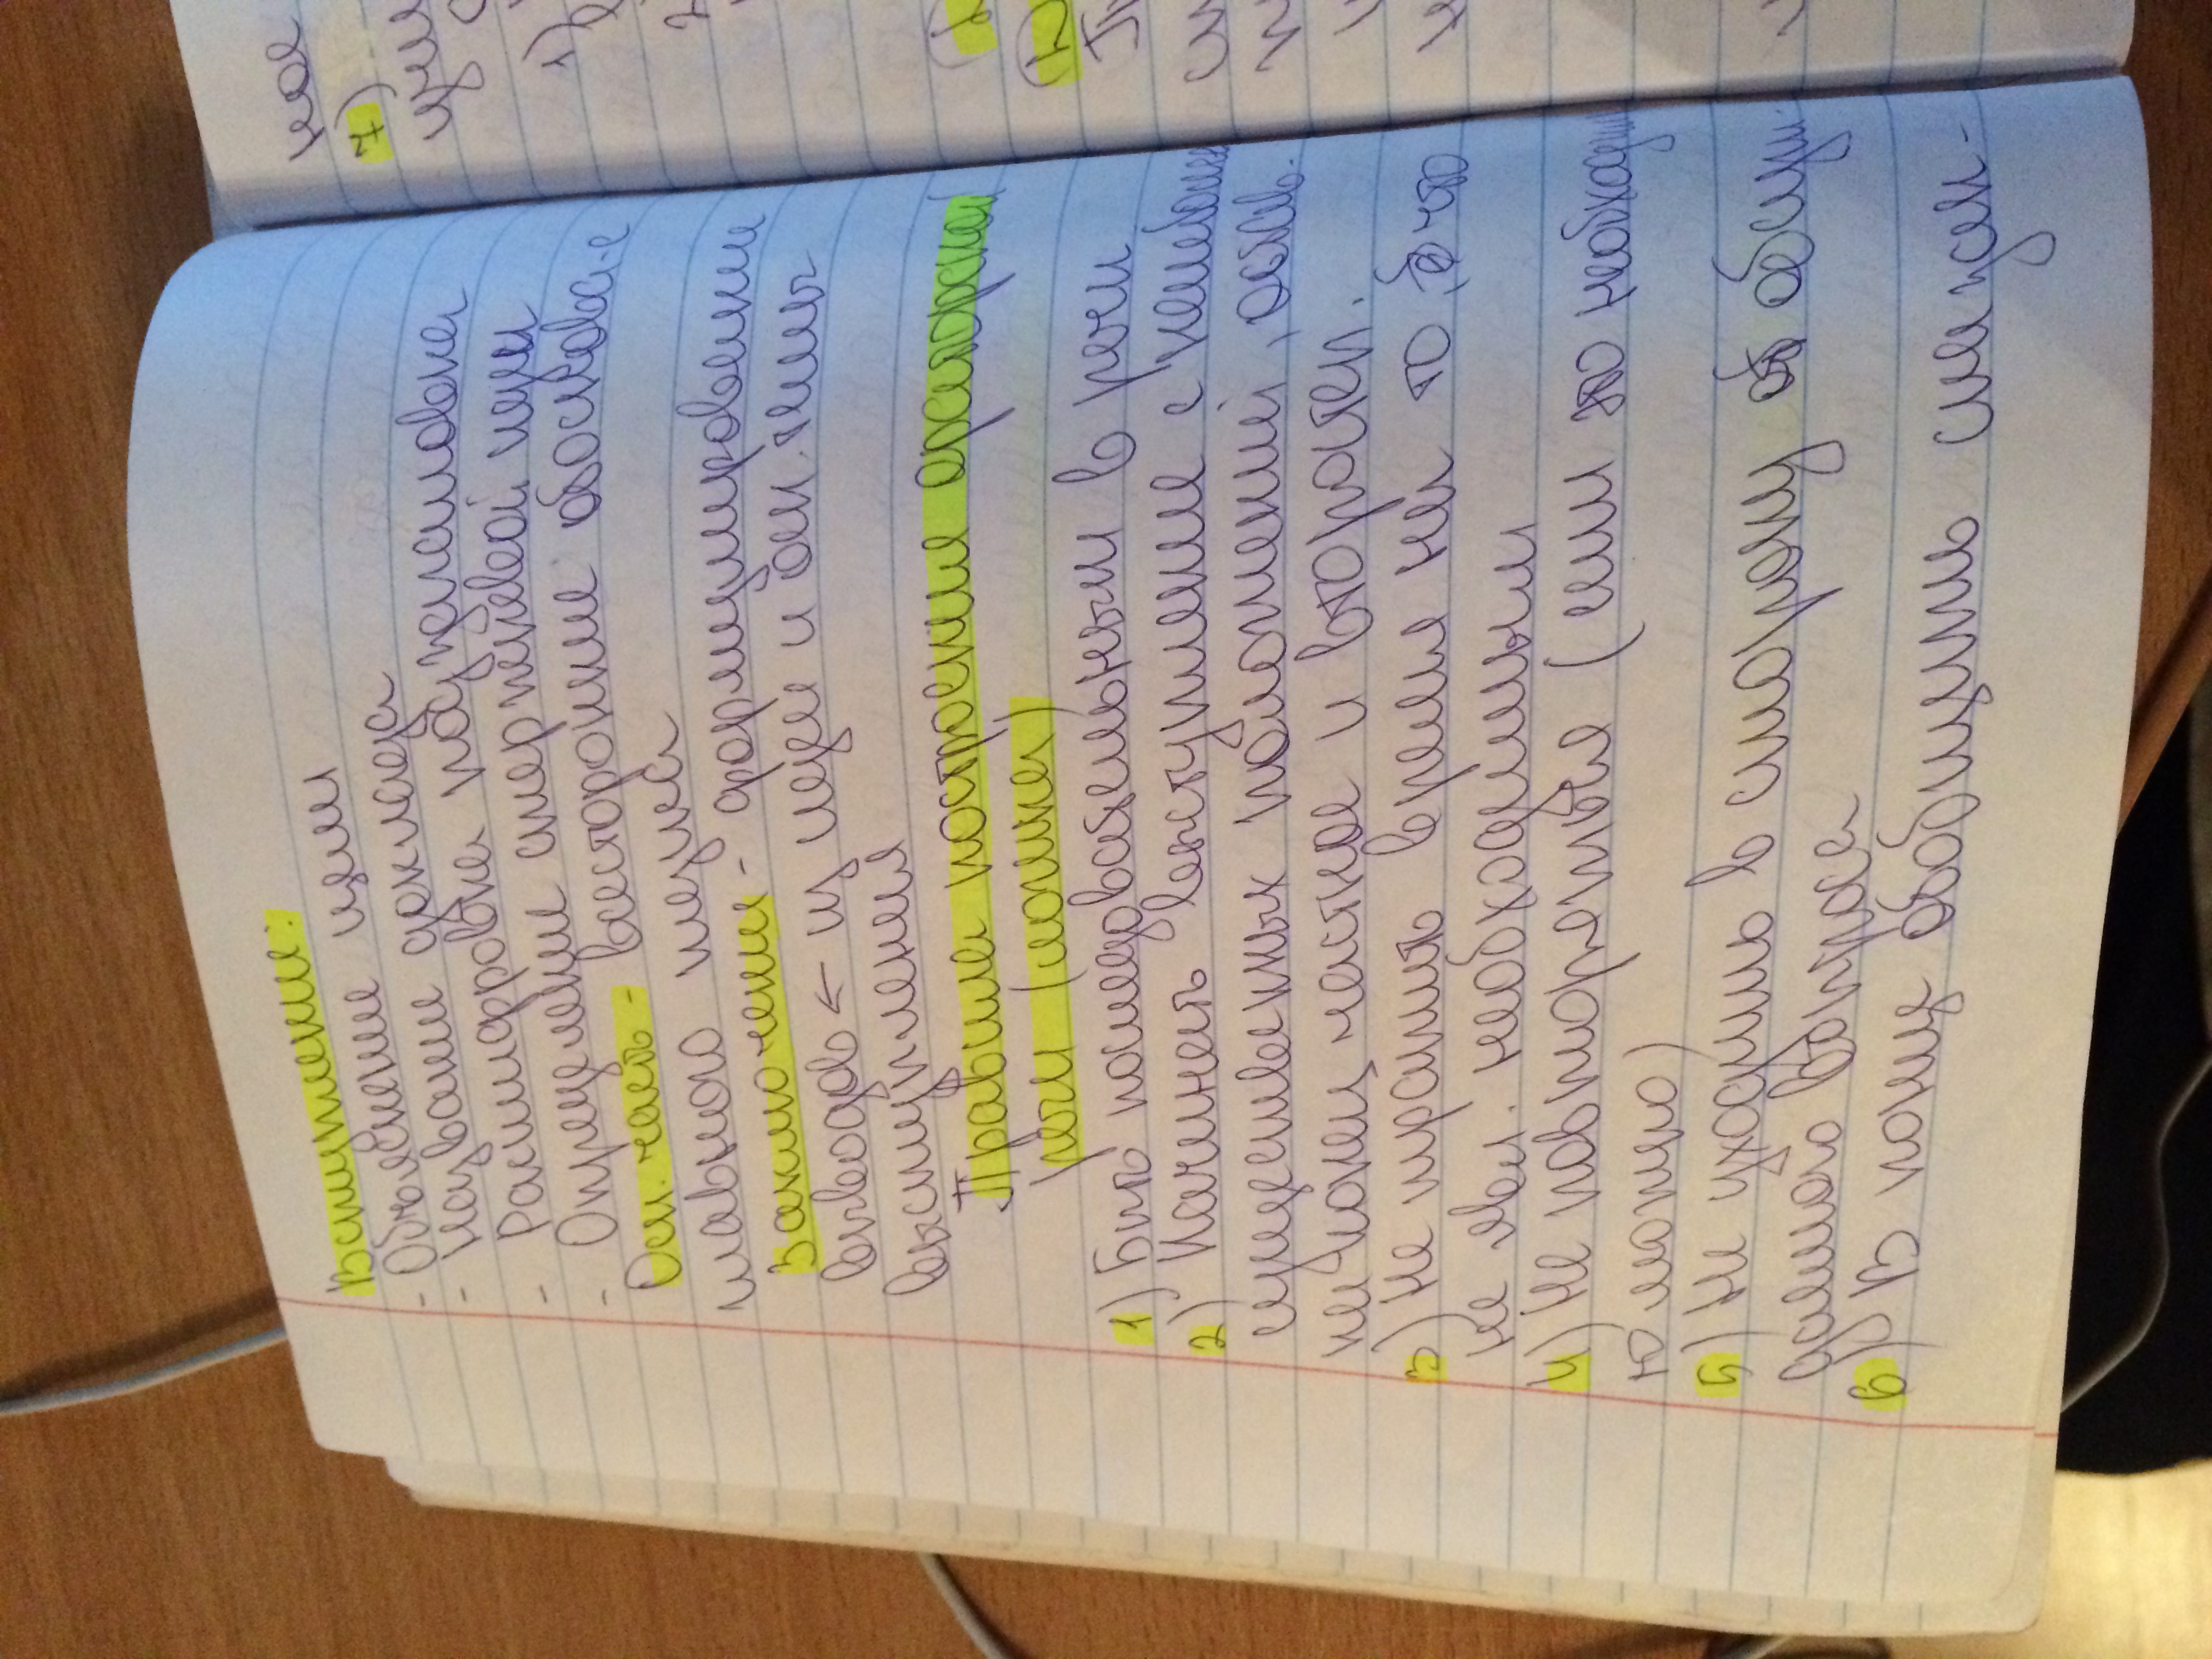 Вступление:
- Объяснение цели
- Название доклада
- Расшифровка подзаголовка
- Определение стержневой идеи
Осн. часть - всесторонние обоснова-е
главного тезиса
Заключение - формулирование
выводов ← из идеи и осн. темы
выступления
Правила построения ораторской
речи (логика)
1) Быть последовательным в речи
2) Начинать выступление с
существенных положений, остав.
на конец частное и второстеп.
3) Не тратить время на то, что
не явл. необходимым
4) Не повторяться (если это необходим
то можно)
5) Не уходить в сторону от обсуж-
даемого вопроса
6) В конце обобщить сказан-
ное
7)
1)
2